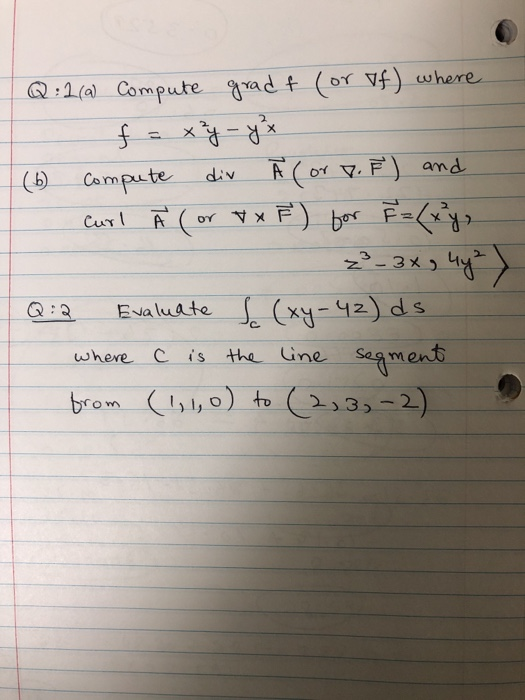 Q:1(a) Compute grad f (or ∇f) where
f = x²y - y²x
(b) Compute div A⃗ (or ∇. F⃗) and
Curl A⃗ (or ∇ x F⃗) for F⃗ = ⟨x²y,
z³ - 3x, 4y²⟩
Q:2 Evaluate ∫c (xy-4z) ds
where C is the line segment
from (1,1,0) to (2,3,-2)